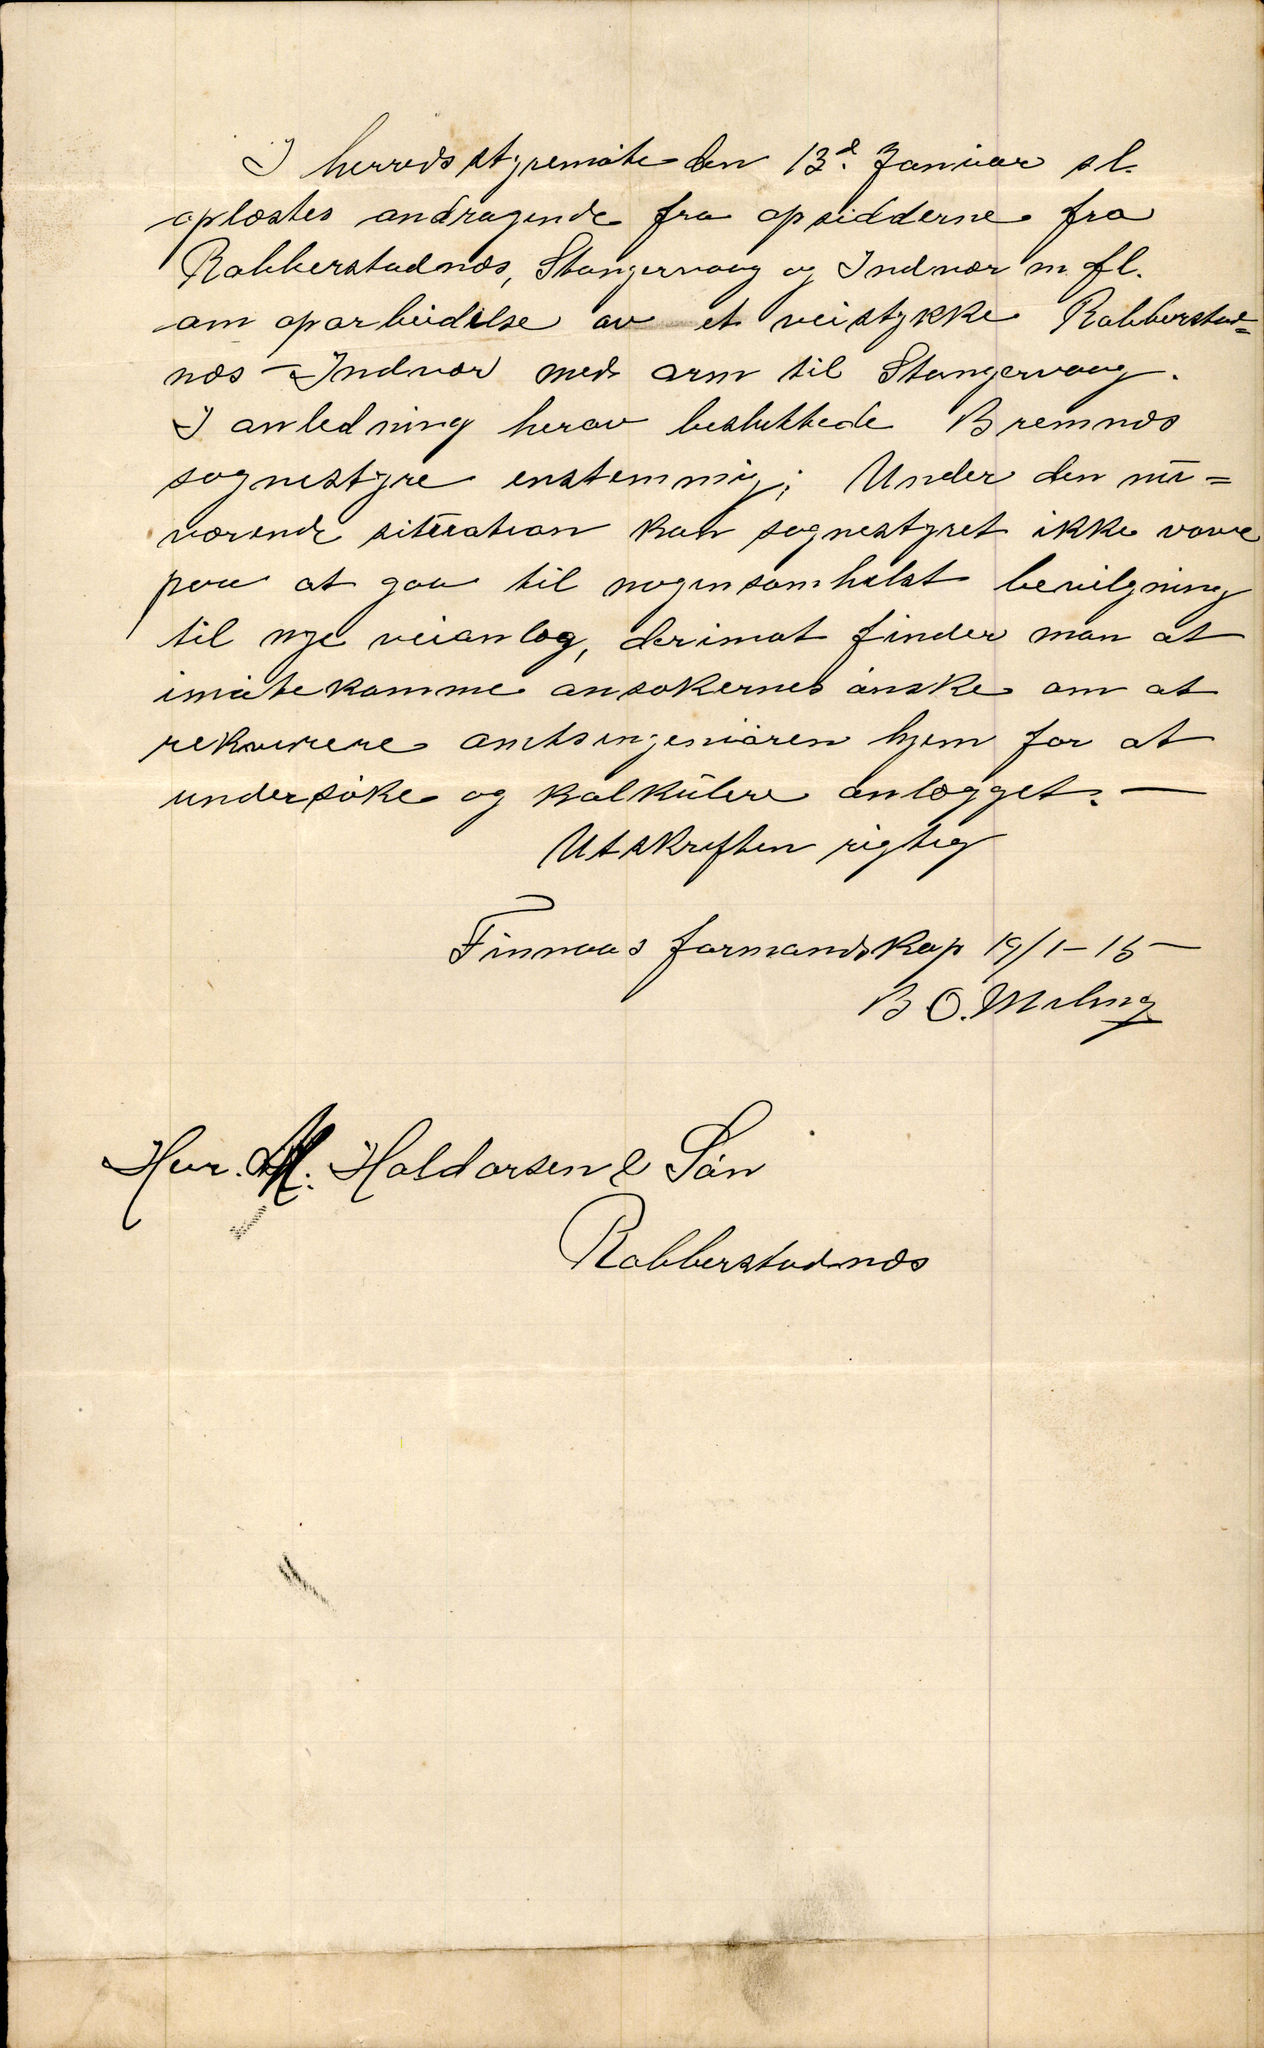 I herredsstyremöte den 13d. Januar sl.
oplæstes andragende fra opsidderne fra
Rabberstadnæs, Stangervaag og Indvær m. fl.
om oparbeidelse av et veistykke Rabberstad=
næs - Indvær med arm til Stangervaag.
I anledning herav besluttede Bremnæs
sognestyre enstemmig; Under den nu=
værende situation kan sognestyret ikke vove
paa at gaa til nogensomhelst bevilgning
til nye veianlæg, derimot finder man at
imötekomme ansøkernes önske om at
rekvirere amtsingeniören hjem for at
undersöke og kalkulere anlægget. —
Utskriften rigtig
Finnaas formandskap 19/1-15
B O. Meling
Herr. M. Haldorsen & Sön
Rabberstadnæs